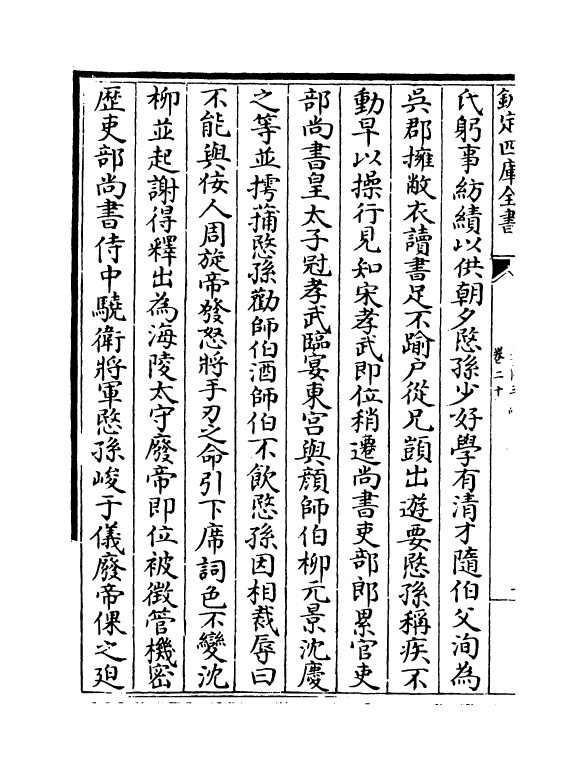 欽定四庫全書
卷二十
氏躬事紡績以供朝夕愍孫少好學有清才隨伯父洵為
吳郡擁敝衣讀書足不踰戶從兄顗出遊要愍孫稱疾不
動早以操行見知宋孝武即位稍遷尚書吏部郎累官吏
部尚書皇太子冠孝武臨宴東宮與顔師伯柳元景沈慶
之等並摴蒱愍孫勸師伯酒師伯不飲愍孫因相裁辱曰
不能與佞人周旋帝發怒將手刃之命引下席詞色不變沈
柳並起謝得釋出為海陵太守廢帝即位被徵管機密
歷吏部尚書侍中驍衛將軍愍孫峻于儀廢帝倮之廹